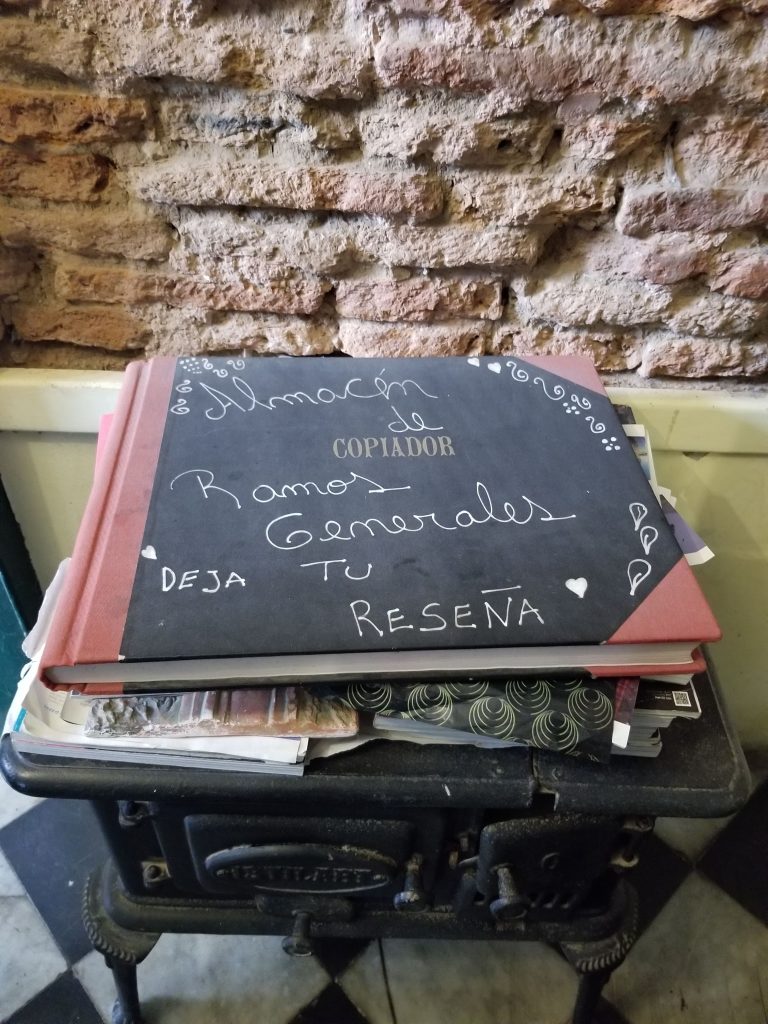 Almacén
de
COPIADOR
Ramos
Generales
DEJA TU
RESEÑA